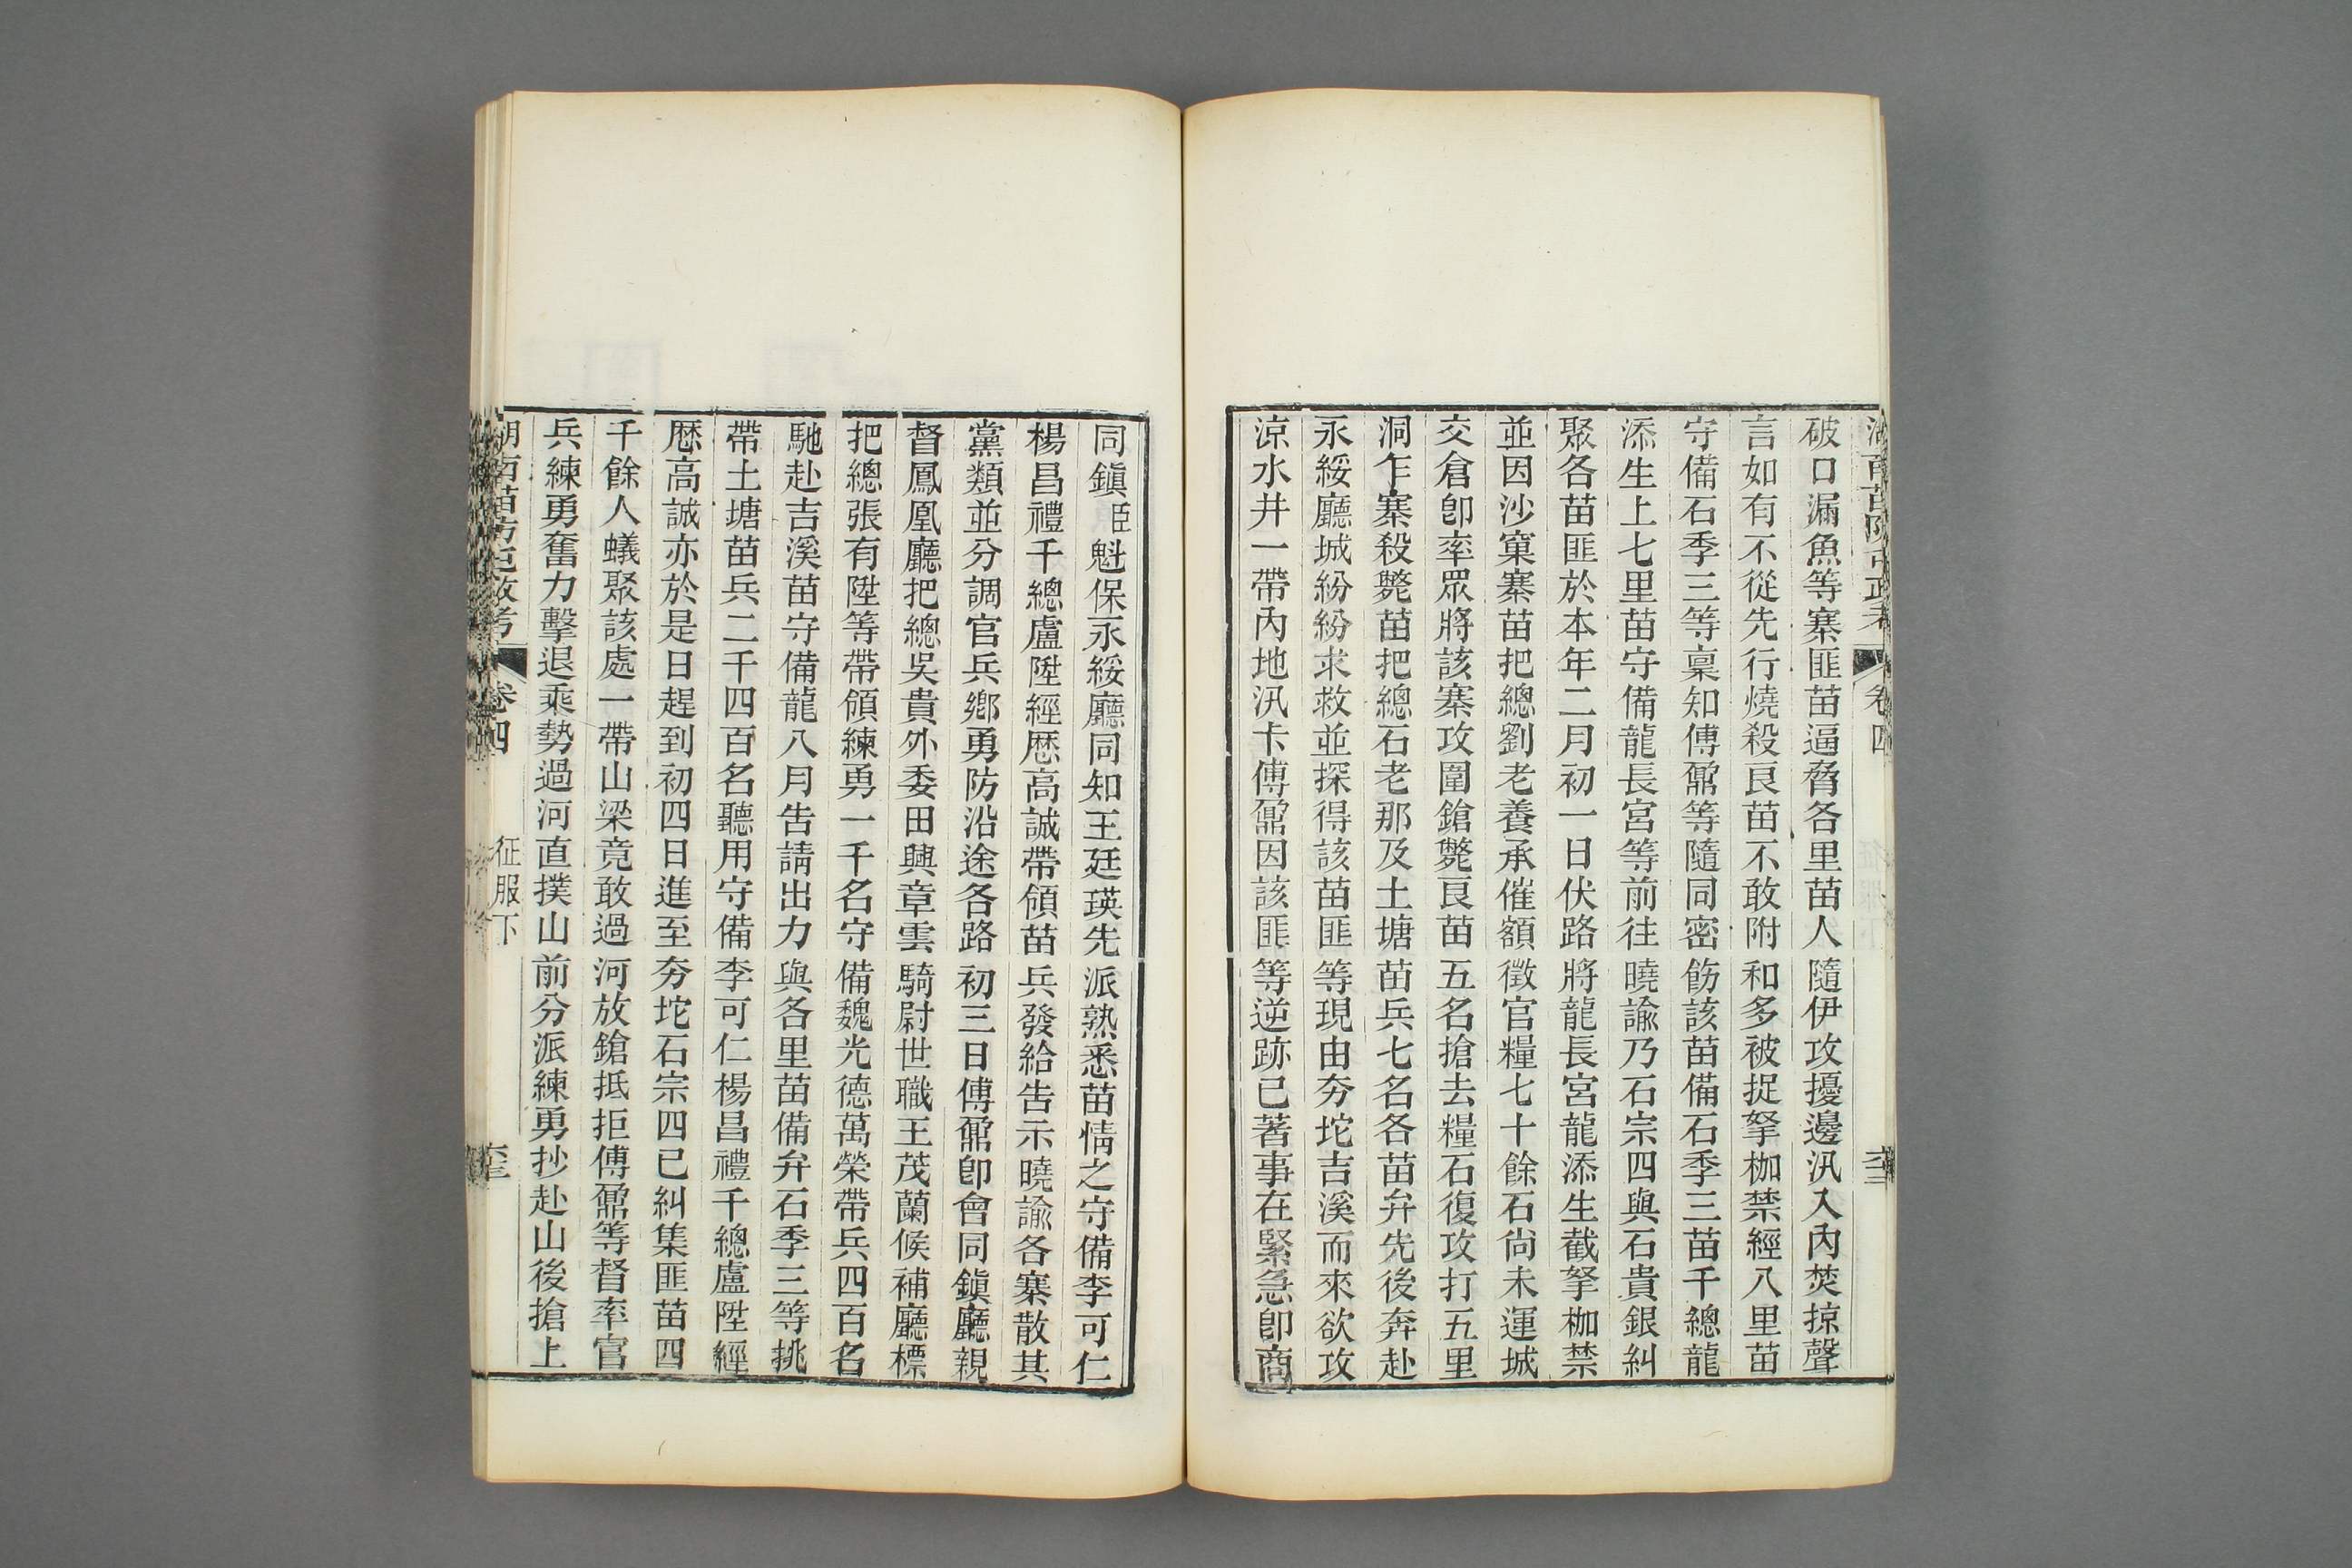 破口漏魚等寨匪苗逼脅各里苗人隨伊攻擾邊汛入內焚掠聲
言如有不從先行燒殺良苗不敢附和多被捉拏枷禁經八里苗
守備石季三等稟知傅鼐等隨同密飭該苗備石季三苗千總龍
添生上七里苗守備龍長宮等前往曉諭乃石宗四與石貴銀糾
聚各苗匪於本年二月初一日伏路將龍長宮龍添生截拏枷禁
並因沙窠寨苗把總劉老養承催額徵官糧七十餘石尚未運城
交倉卽率眾將該寨攻圍鎗斃良苗五名搶去糧石復攻打五里
洞乍寨殺斃苗把總石老那及土塘苗兵七名各苗弁先後奔赴
永綏廳城紛紛求救並探得該苗匪等現由夯坨吉溪而來欲攻
涼水井一帶內地汛卡傅鼐因該匪等逆跡已著事在緊急卽商
同鎮姬魁保永綏廳同知王廷瑛先派熟悉苗情之守備李可仁
楊昌禮千總盧陞經歷高誠帶領苗兵發給告示曉諭各寨散其
黨類並分調官兵鄉勇防沿途各路初三日傅鼐卽會同鎮廳親
督鳳凰廳把總吳貴外委田興章雲騎尉世職王茂蘭候補廳標
把總張有陞等帶領練勇一千名守備魏光德萬榮帶兵四百名
馳赴吉溪苗守備龍八月告請出力與各里苗備弁石季三等挑
帶土塘苗兵二千四百名聽用守備李可仁楊昌禮千總盧陞經
歷高誠亦於是日趕到初四日進至夯坨石宗四已糾集匪苗四
千餘人蟻聚該處一帶山梁竟敢過河放鎗抵拒傅鼐等督率官
兵練勇奮力擊退乘勢過河直撲山前分派練勇抄赴山後搶上
湖南苗防屯政考
卷四
征服下